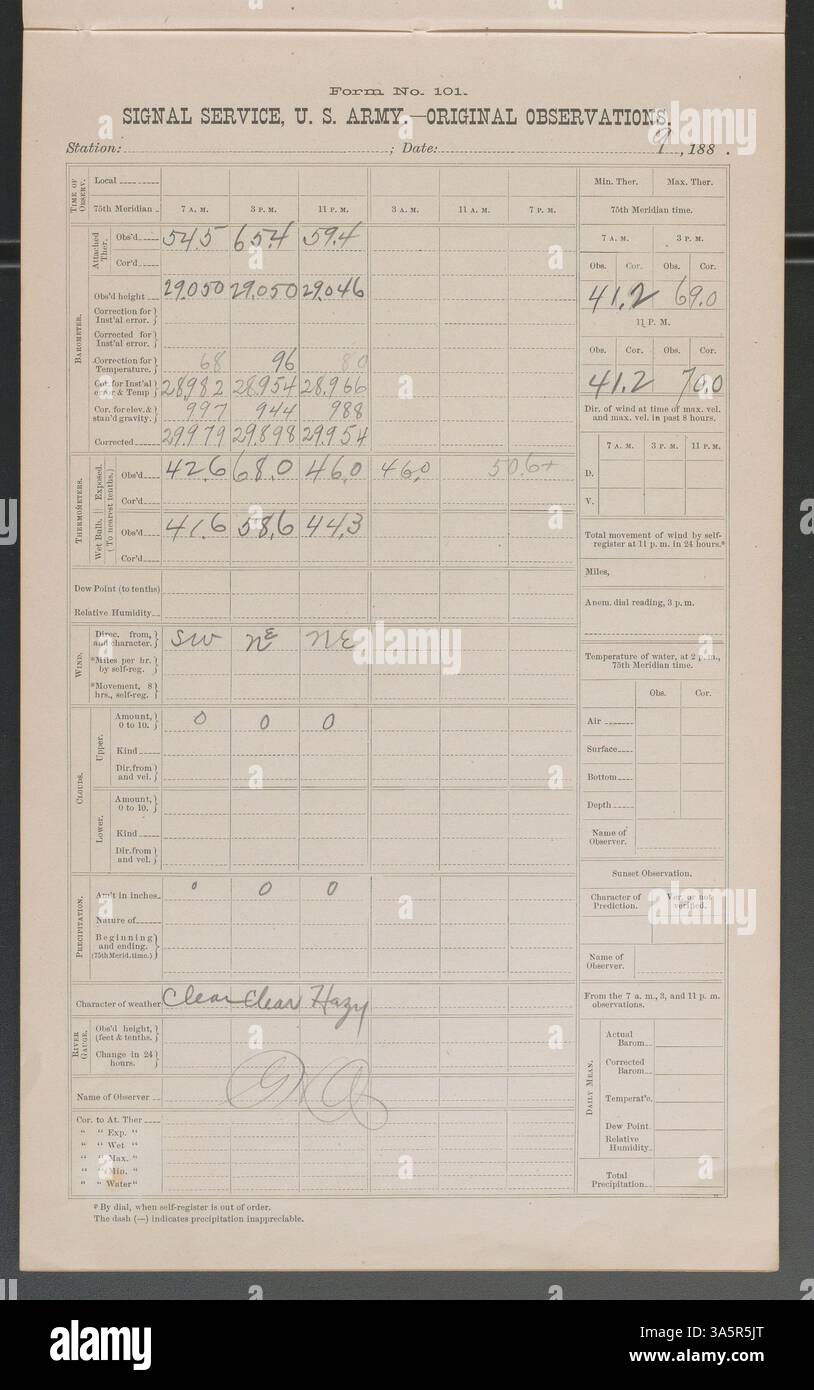 Form No. 101.
SIGNAL SERVICE, U. S. ARMY.—ORIGINAL OBSERVATIONS.
Station: ; Date: 9, 188 .
TIME OF OBSERV.
Local
75th Meridian 7 A. M. 3 P. M. 11 P. M. 3 A. M. 11 A. M. 7 P. M.
BAROMETER.
Attached Ther.
Obs'd 54.5 65.4 59.4
Cor'd
Obs'd height 29.050 29.050 29.046
Correction for Inst'al error.
Corrected for Inst'al error.
Correction for Temperature. 68 96 80
Cor. for Inst'al error & Temp 28.982 28.954 28.966
Cor. for elev. & stan'd gravity. 997 944 988
Corrected 29.979 29.898 29.954
THERMOMETERS.
(To nearest tenths.)
Exposed.
Obs'd 42.6 68.0 46.0 46.0 50.6+
Cor'd
Wet Bulb.
Obs'd 41.6 58.6 44.3
Cor'd
Dew Point (to tenths)
Relative Humidity
WIND.
Direc. from, and character. SW NE NE
*Miles per hr. by self-reg.
*Movement, 8 hrs., self-reg.
CLOUDS.
Upper.
Amount, 0 to 10. 0 0 0
Kind
Dir. from and vel.
Lower.
Amount, 0 to 10.
Kind
Dir. from and vel.
PRECIPITATION.
Am't in inches 0 0 0
Nature of
Beginning and ending. (75th Merid. time.)
Character of weather Clear Clear Hazy
RIVER GAUGE.
Obs'd height, (feet & tenths.)
Change in 24 hours.
Name of Observer
Cor. to At. Ther
" " Exp. "
" " Wet "
" " Max. "
" " Min. "
" " Water "
* By dial, when self-register is out of order.
The dash (—) indicates precipitation inappreciable.
Min. Ther. Max. Ther.
75th Meridian time.
7 A. M. 3 P. M.
Obs. Cor. Obs. Cor.
41.2 69.0
11 P. M.
Obs. Cor. Obs. Cor.
41.2 70.0
Dir. of wind at time of max. vel.
and max. vel. in past 8 hours.
7 A. M. 3 P. M. 11 P. M.
D.
V.
Total movement of wind by self-
register at 11 p. m. in 24 hours.*
Miles,
Anem. dial reading, 3 p. m.
Temperature of water, at 2 p. m.,
75th Meridian time.
Obs. Cor.
Air
Surface
Bottom
Depth
Name of Observer.
Sunset Observation.
Character of Prediction. Ver. or not verified.
Name of Observer.
From the 7 a. m., 3, and 11 p. m.
observations.
DAILY MEAN.
Actual Barom.
Corrected Barom.
Temperat'e.
Dew Point
Relative Humidity.
Total Precipitation.
alamy
Image ID: 3A5R5JT
www.alamy.com